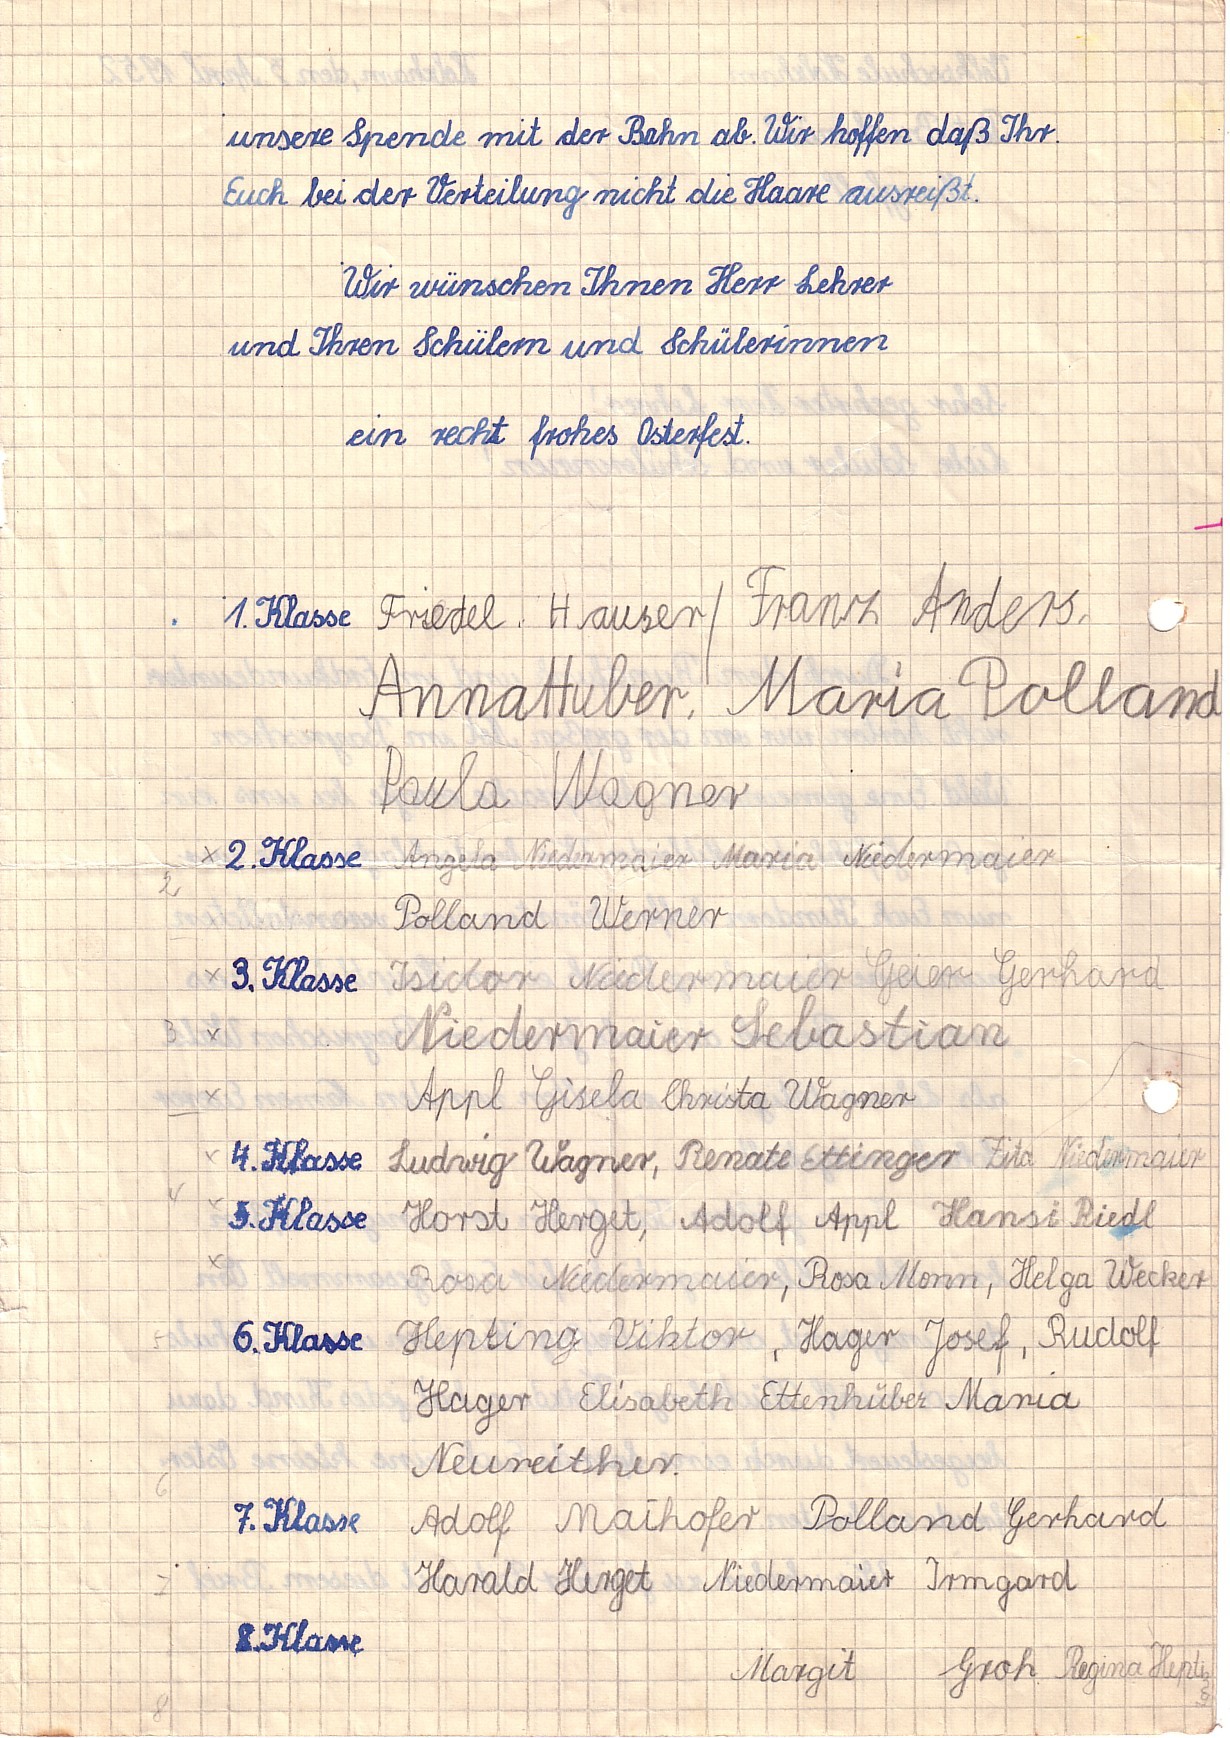 unsere Spende mit der Bahn ab. Wir hoffen daß Ihr
Euch bei der Verteilung nicht die Haare ausreißt.
Wir wünschen Ihnen Herr Lehrer
und Ihren Schülern und Schülerinnen
ein recht frohes Osterfest.
1. Klasse Friedel. Hauser/ Franz Anders.
Anna Huber. Maria Polland
Paula Wagner
x 2. Klasse Angela Niedermaier Maria Niedermaier
2
Polland Werner
x 3. Klasse Isidor Niedermaier Geier Gerhard
3 x Niedermaier Sebastian
x Appl Gisela Christa Wagner
4. Klasse Ludwig Wagner, Renate Ettinger Zita Niedermaier
4
5. Klasse Horst Herget, Adolf Appl Hansi Riedl
x Rosa Niedermaier, Rosa Monn, Helga Wecker
5 6. Klasse Hepting Viktor, Hager Josef, Rudolf
Hager Elisabeth Ettenhuber Maria
Neureither.
6
7. Klasse Adolf Maihofer Polland Gerhard
7 Harald Herget Niedermaier Irmgard
8. Klasse
Margit Groh Regina Hepting
8